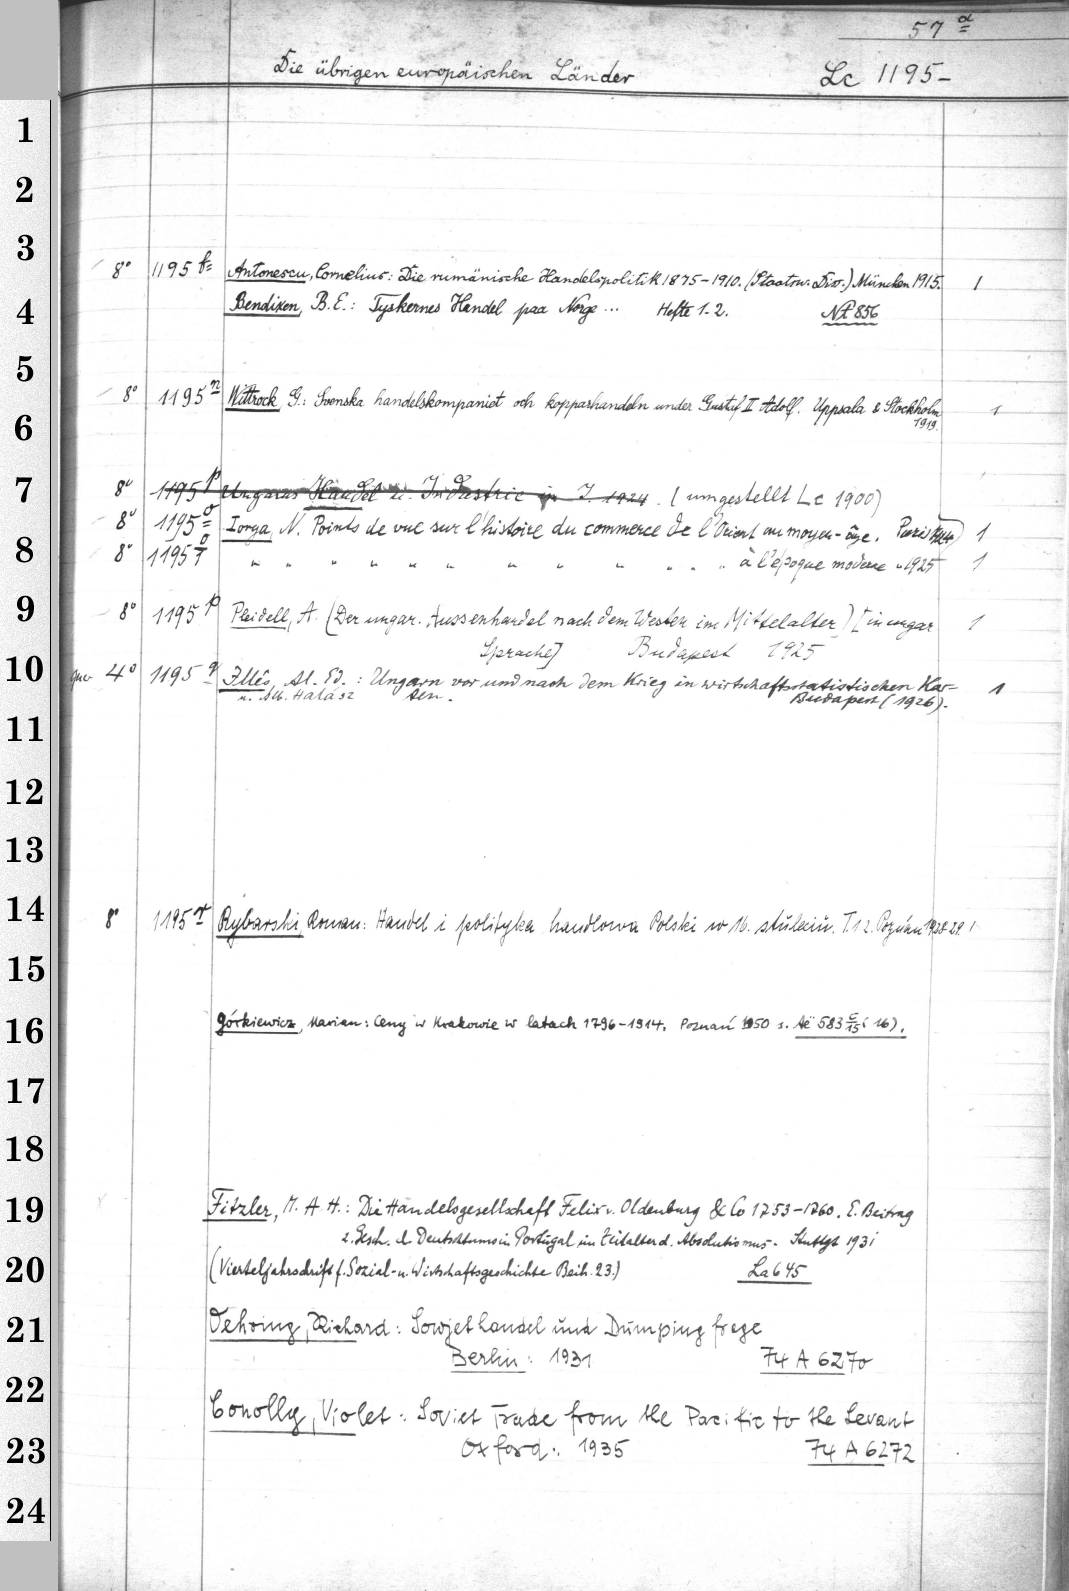 57 a
Die übrigen europäischen Länder Lc 1195-
1
2
3
8° 1195 Antonescu, Cornelius: Die rumänische Handelspolitik 1875-1910. (Staatsw. Diss.) München 1915. 1
4 Bendixen, B.E.: Tyskernes Handel paa Norge ... Hefte 1-2. 856
5
8° 1195 n Wittrock, G.: Svenska handelskompaniet och kopparhandeln under Gustaf II Adolf. Uppsala & Stockholm 1
6 1919.
7 8° 1195 p Ungarns Handel u. Industrie i. J. 1924. (umgestellt Lc 1900)
8° 1195 o Iorga, N. Points de vue sur l'histoire du commerce de l'Orient au moyen-âge. Paris 1924 1
8 8° 1195 o/1 " " " " " " " " " " " " à l'époque moderne " 1925 1
9 8° 1195 p Pleidell, A. (Der ungar. Aussenhandel nach dem Westen im Mittelalter) [in ungar 1
Sprache] Budapest 1925
10 4° 1195 q Illés, Al. Ed.: Ungarn vor und nach dem Krieg in wirtschaftsstatistischen Kar= 1
u. Alb. Halász ten. Budapest (1926).
11
12
13
14 8° 1195 r Rybarski, Roman: Handel i polityka handlowa Polski w 16. stuleciu. T. 1 2. Poznán 1928-29. 1
15
16 Górkiewicz, Marian: Ceny w Krakowie w latach 1796-1914. Poznań 1950 s. Aë 583 c/15 (16).
17
18
19 Fitzler, M. A. H.: Die Handelsgesellschaft Felix v. Oldenburg & Co 1753-1760. E. Beitrag
z. Gesch. d. Deutschtums in Portugal im Zeitalter d. Absolutismus. Stuttgt 1931
20 (Vierteljahrschrift f. Sozial- u. Wirtschaftsgeschichte Beih. 23.) La 645
21 Oehring, Richard: Sowjethandel und Dumpingfrage
Berlin: 1931 74 A 6270
22 Conolly, Violet: Soviet Trade from the Pacific to the Levant
23 Oxford: 1935 74 A 6272
24